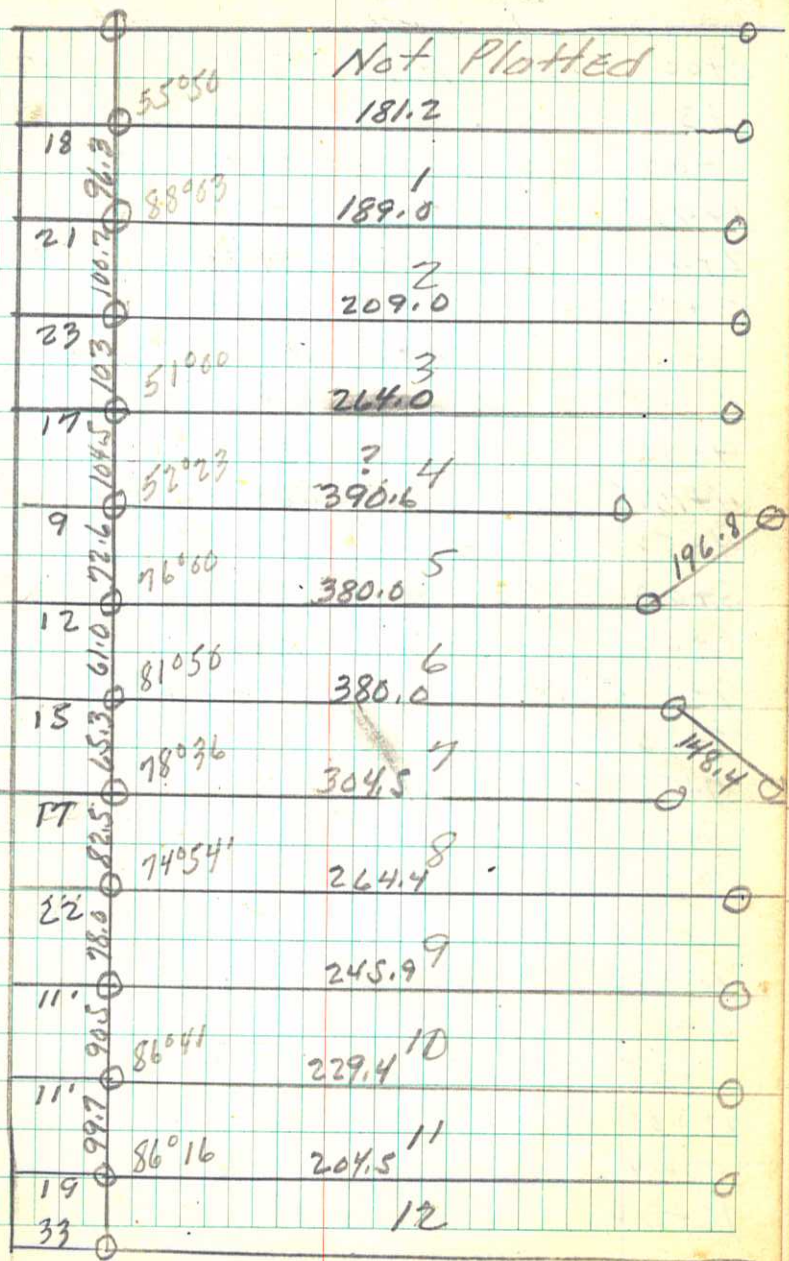 Not Plotted
55°50 181.2
18
96.3
88°03 1
189.0
21
100.2
2
209.0
23
103
51°00 3
264.0
17
104.5
52°23 ? 4
390.6
9
72.6 196.8
76°00 5
380.0
12
61.0
81°50 6
380.0
15
65.3 148.4
78°36 7
304.5
17
82.5
74°54' 8
264.4
22
78.0
9
245.9
11'
90.5
86°41 10
229.4
11'
99.7
86°16 11
204.5
19
12
33